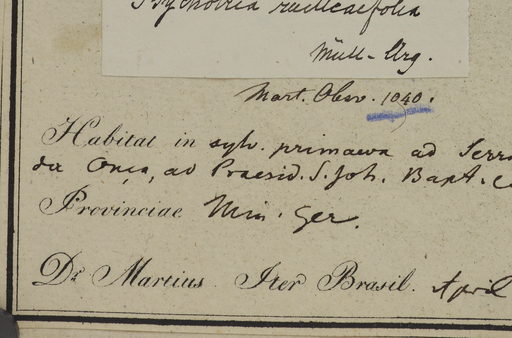 Psychotria ruelliaefolia
Müll-Arg.
Mart. Obsv. 1040.
Habitat in sylv. primaeva ad Serra
da Onça, ad Praesid. S. Joh. Bapt.
Provinciae Min. Ger.
Dr. Martius. Iter Brasil. April